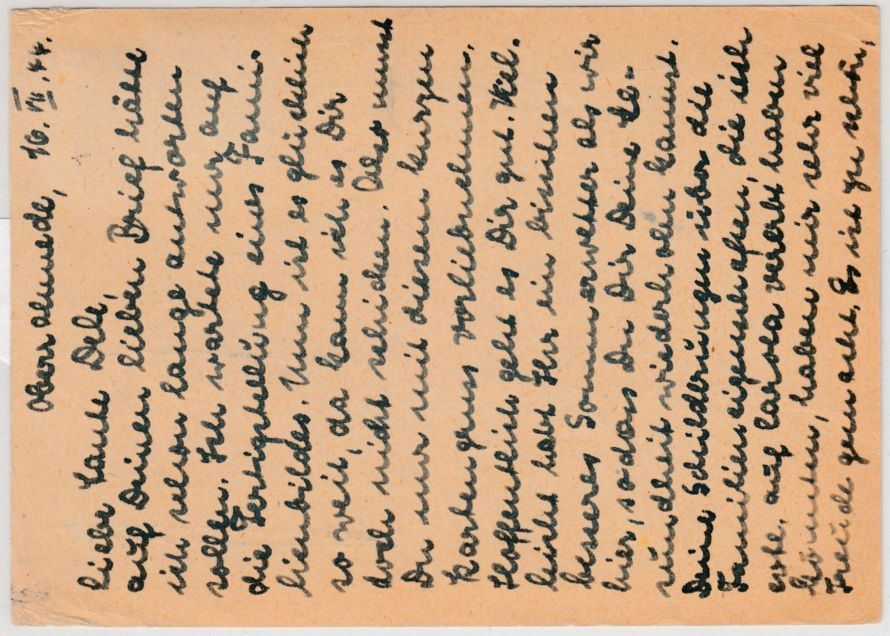 Oberrahmede, 16. VII. 44.
Liebe Tante Dele,
auf Deinen lieben Brief hätte
ich schon lange antworten
sollen. Ich wartete nur auf
die Fertigstellung eines Fami-
lienbildes. Nun ist es glücklich
so weit, da kann ich es Dir
doch nicht schicken. Also musst
Du nur mit diesem kurzen
Kartengruss vorliebnehmen.
Hoffentlich geht es Dir gut. Viel-
leicht habt Ihr ein bisschen
besseres Sommerwetter als wir
hier, sodass Du Dir Deine Ge-
sundheit wiederholen kannst.
Deine Schilderungen über die
Familieneigenschaften, die sich
evtl. auf vererbt haben
könnten, haben mir sehr viel
Freude gemacht. Es ist zu schön,